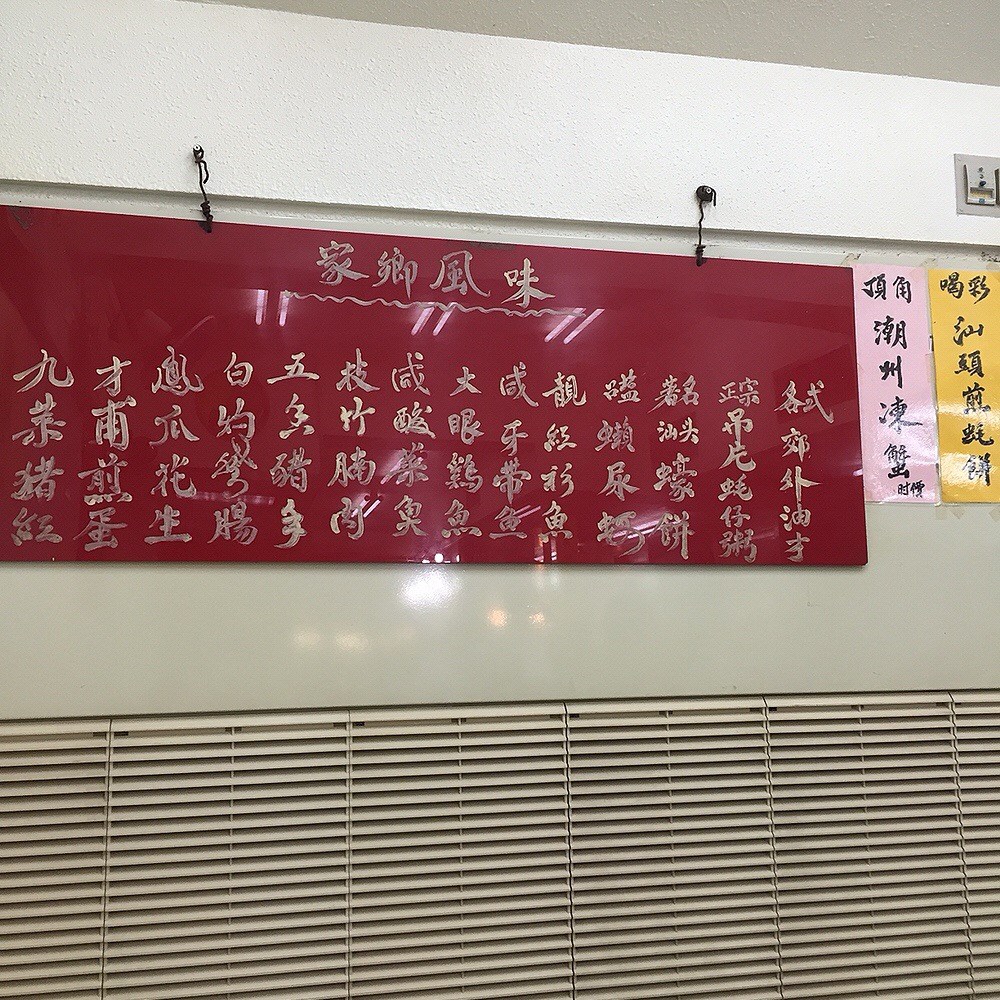 家鄉風味
喝彩
汕頭煎蚝餅
頂角
潮州凍蟹
时價
各式郊外油才
正宗吊片蚝仔粥
著名汕头蠔餅
瀨尿
靚紅衫魚
咸牙带魚
大眼鷄魚
咸酸菜魚
枝竹腩肉
五香豬手
白灼彎腸
鳳爪花生
才甫煎蛋
九菜豬紅